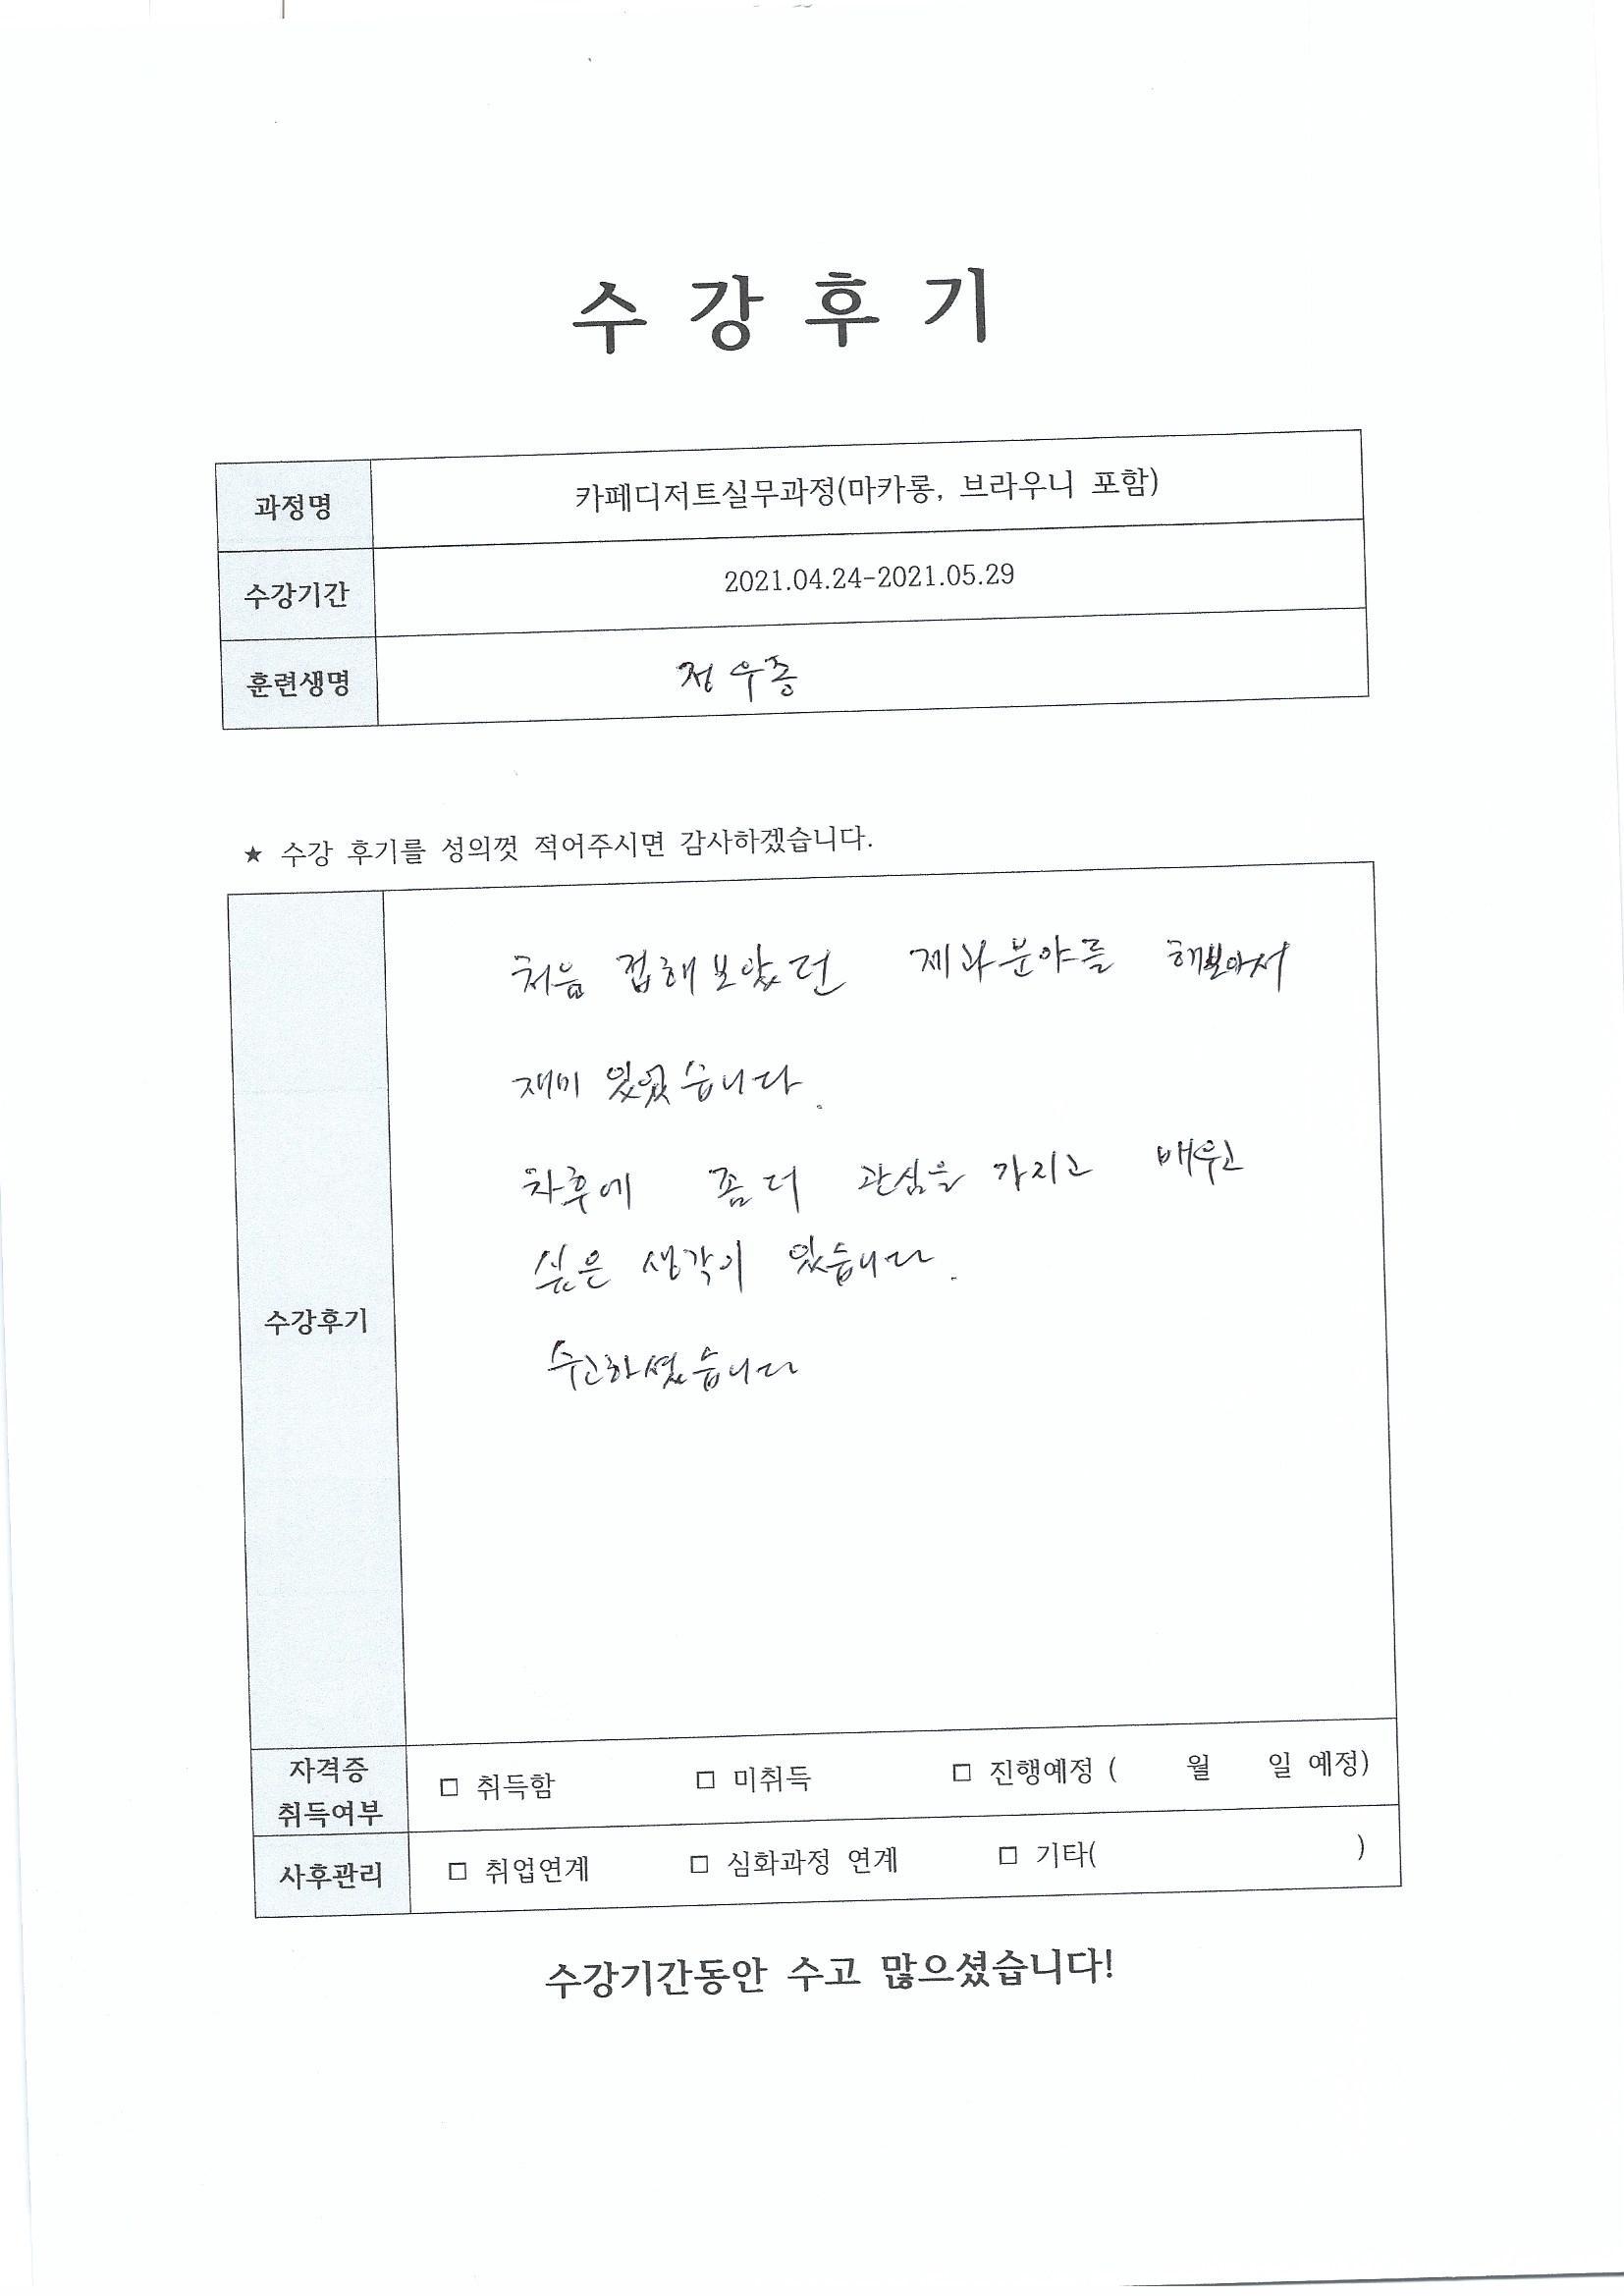 수 강 후 기
과정명 카페디저트실무과정(마카롱, 브라우니 포함)
수강기간 2021.04.24-2021.05.29
훈련생명 정우종
★ 수강 후기를 성의껏 적어주시면 감사하겠습니다.
처음 접해보았던 제과분야를 해보아서
재미 있었습니다.
차후에 좀 더 관심을 가지고 배우고
싶은 생각이 있습니다.
수강후기
수고하셨습니다
자격증
취득여부
□ 취득함 □ 미취득 □ 진행예정 ( 월 일 예정)
사후관리 □ 취업연계 □ 심화과정 연계 □ 기타( )
수강기간동안 수고 많으셨습니다!